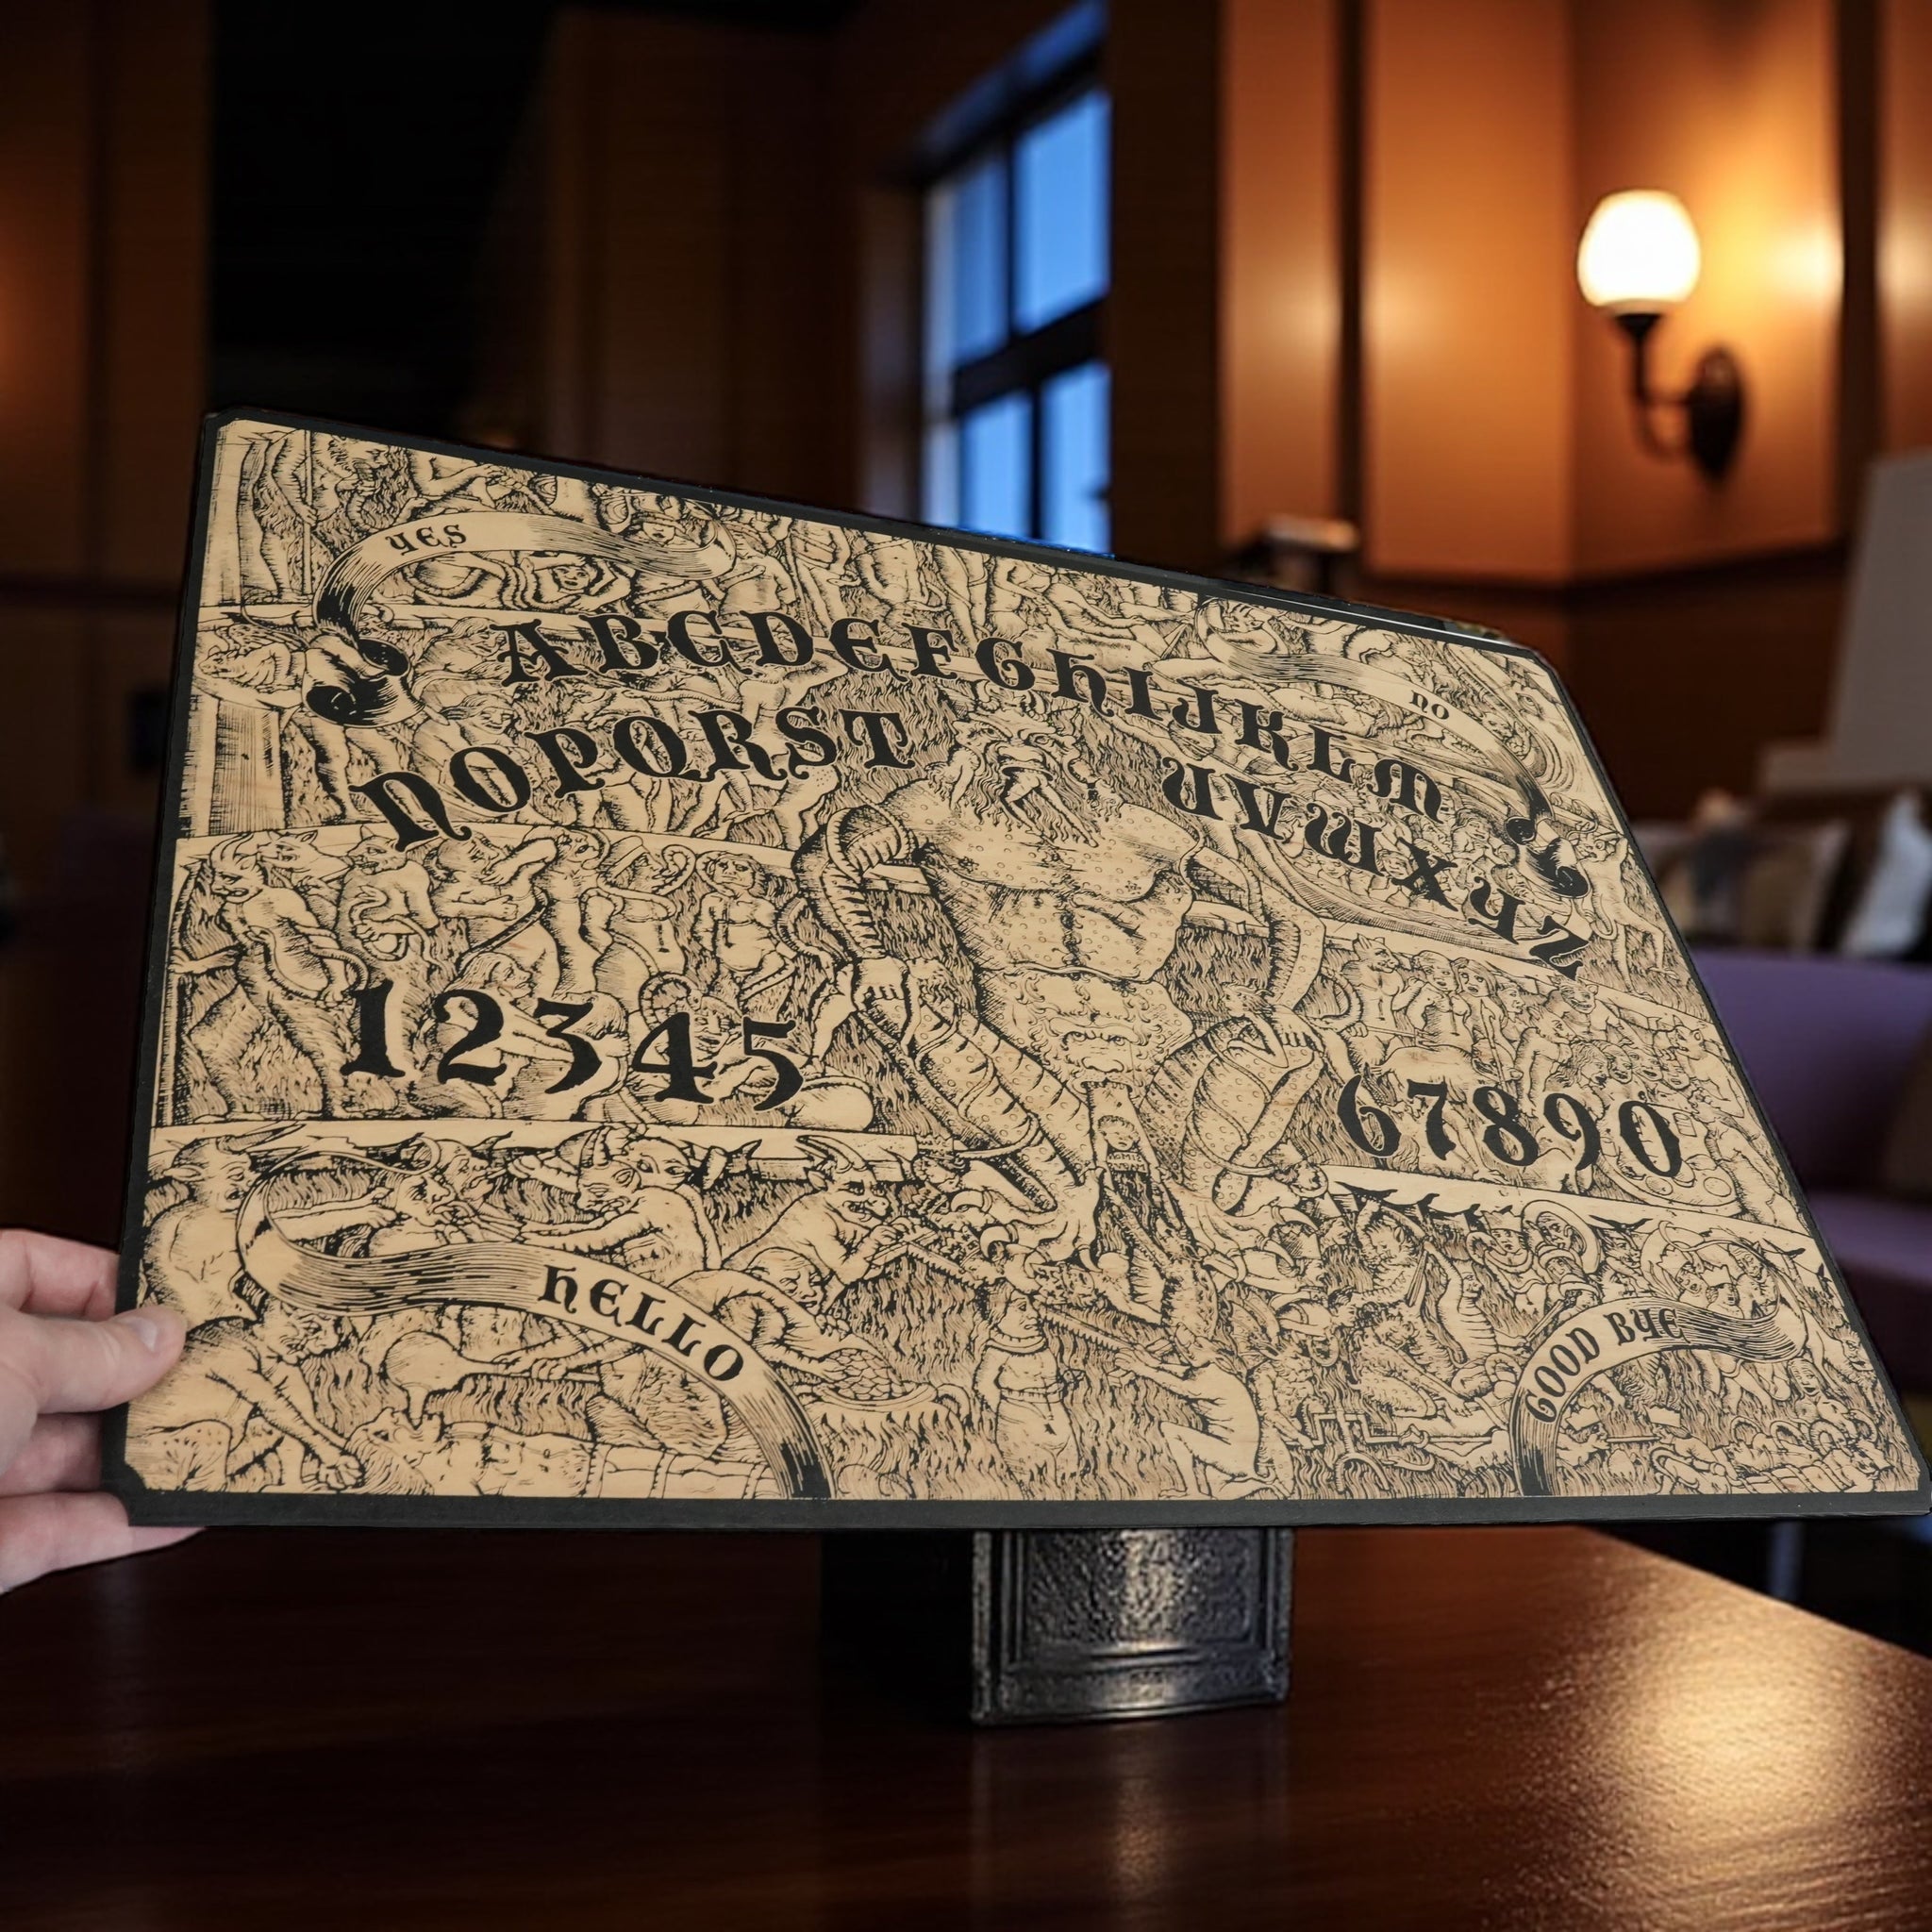 YES
NO
ABCDEFGHIJKLM
NOPQRST
UVWXYZ
12345
67890
HELLO
GOOD BYE